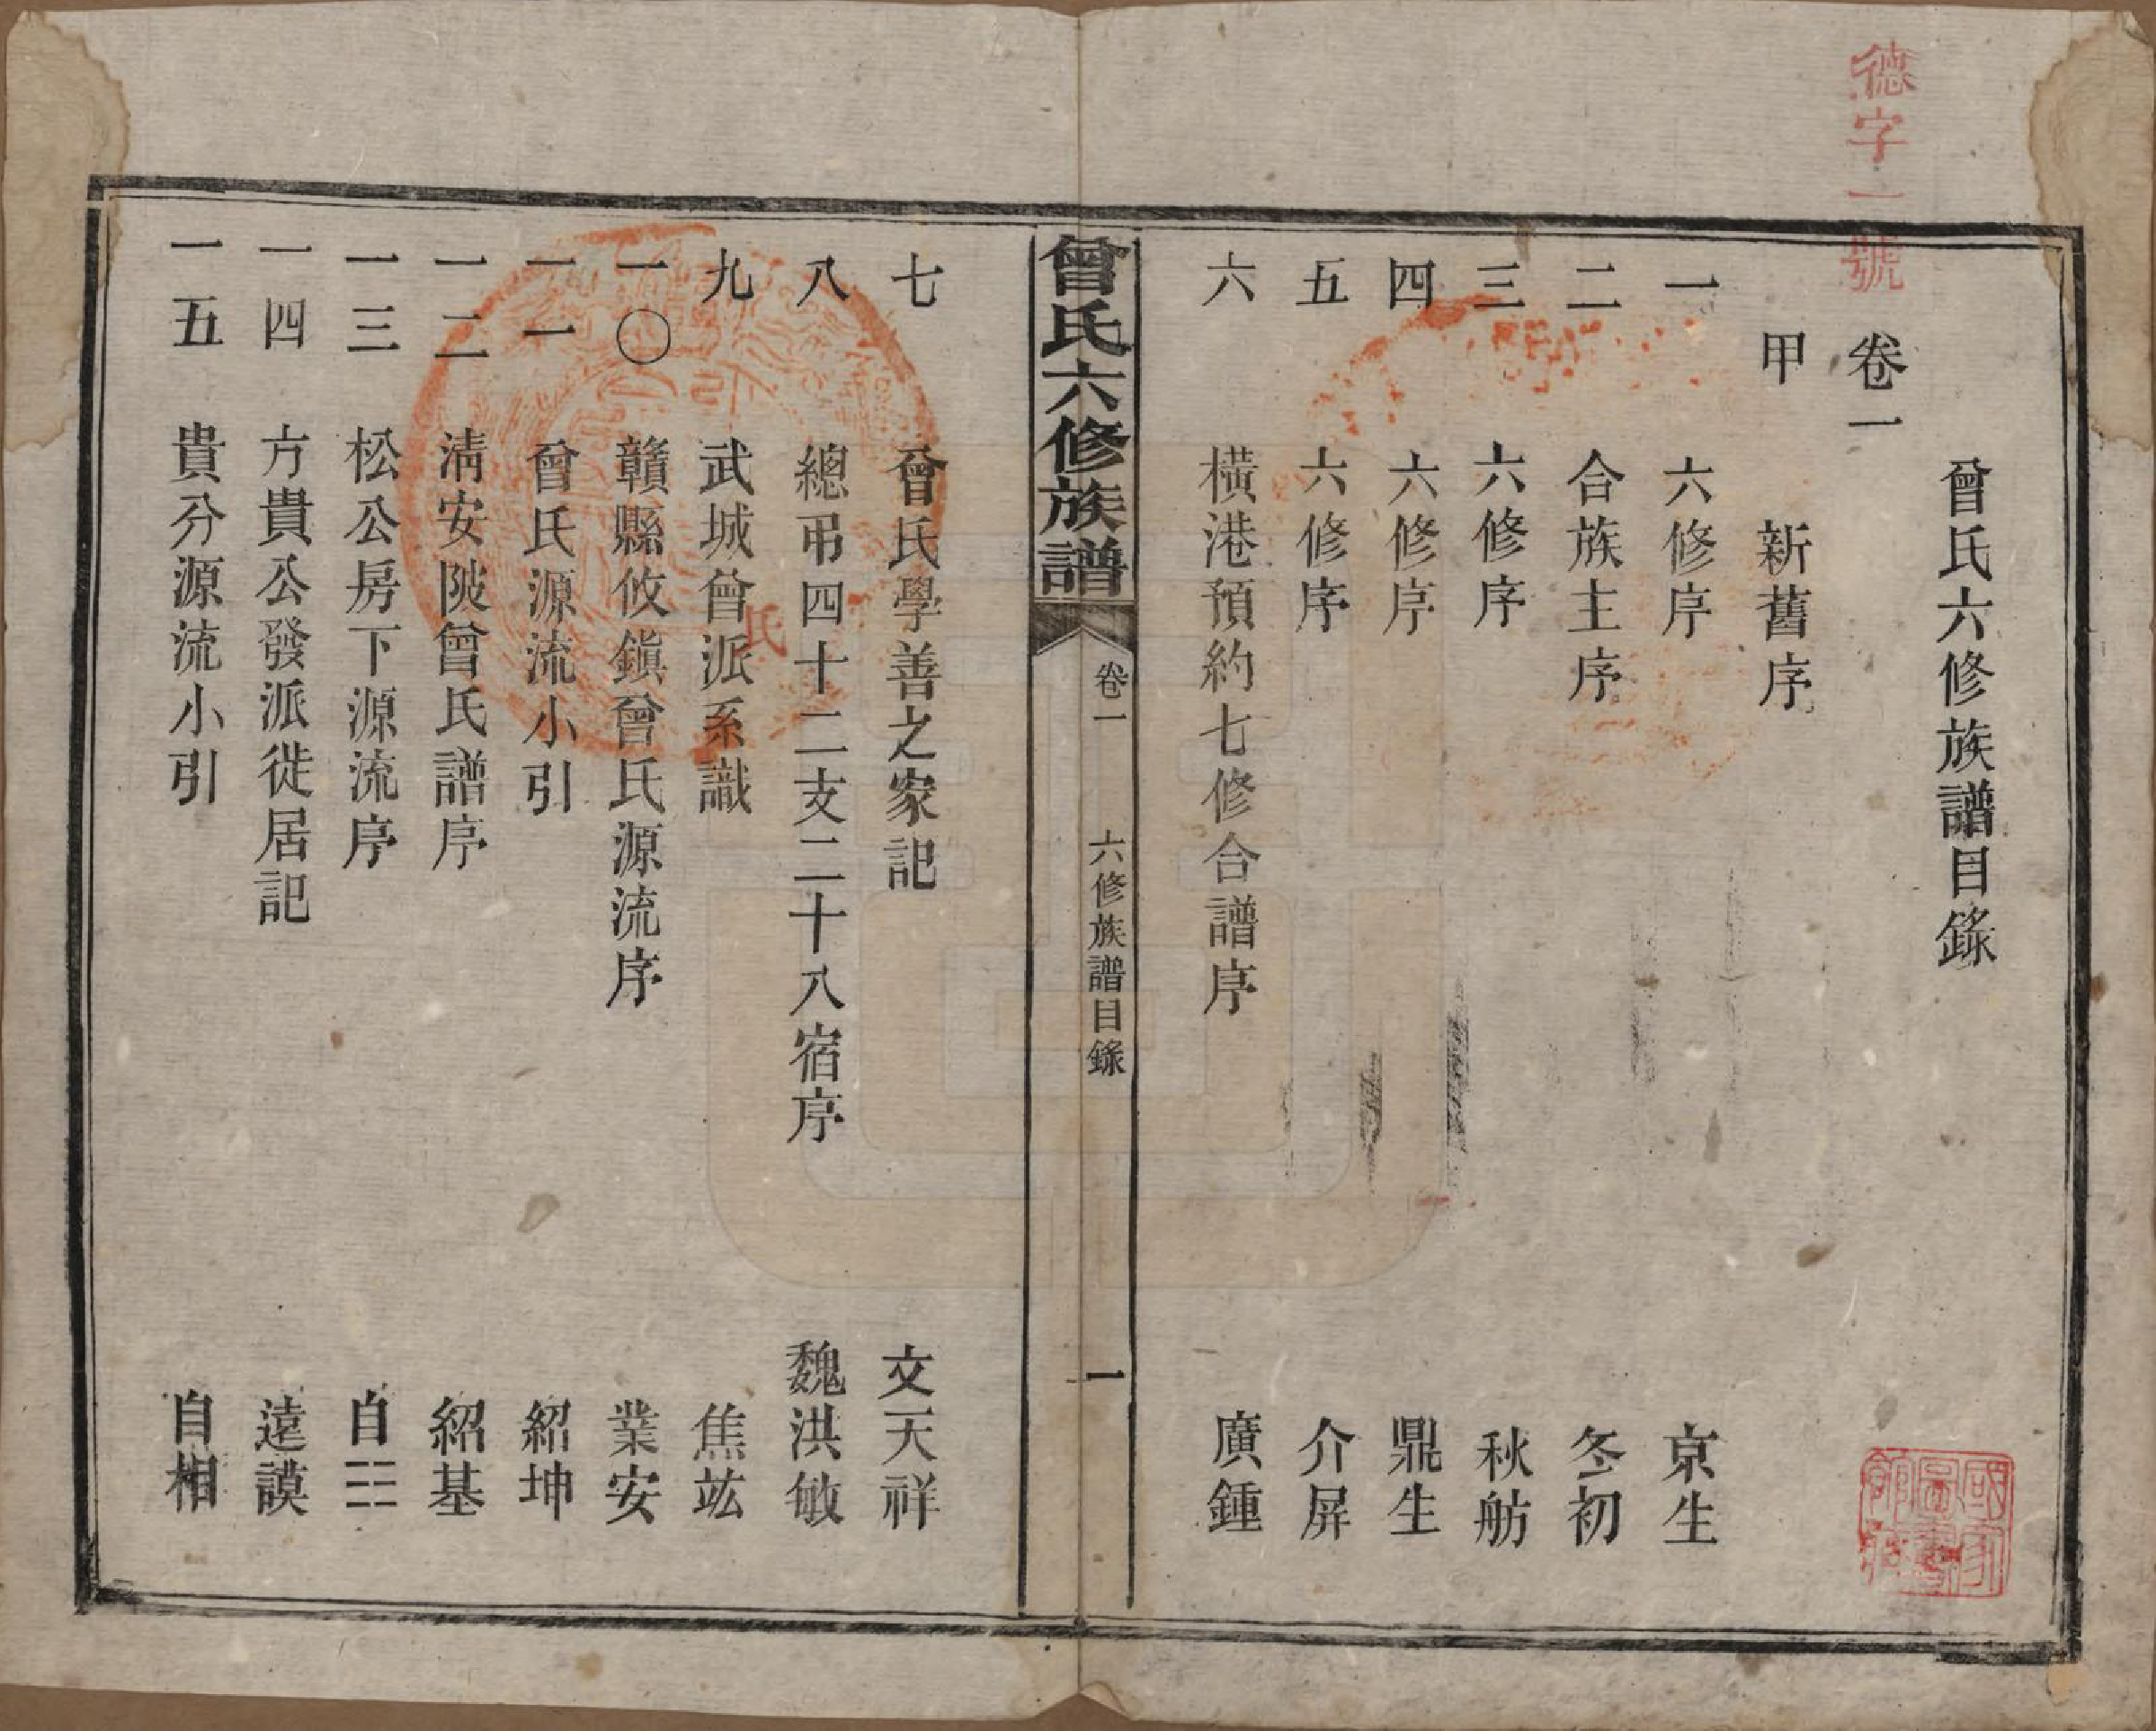 德字一號
曾氏六修族譜目錄
卷一
甲 新舊序
一 六修序 京生
二 合族主序 冬初
三 六修序 秋舫
四 六修序 鼎生
五 六修序 介屏
六 橫港預約七修合譜序 廣鍾
曾氏六修族譜 卷一 六修族譜目錄 一
七 曾氏學善之家記 文天祥
八 總弔四十二支二十八宿序 魏洪敏
九 武城曾派系識 焦竑
一〇 贛縣攸鎮曾氏源流序 業安
一一 曾氏源流小引 紹坤
一二 淸安陂曾氏譜序 紹基
一三 松公房下源流序
一四 方貴公發派徙居記 遠謨
一五 貴分源流小引 自相
國家圖書館藏